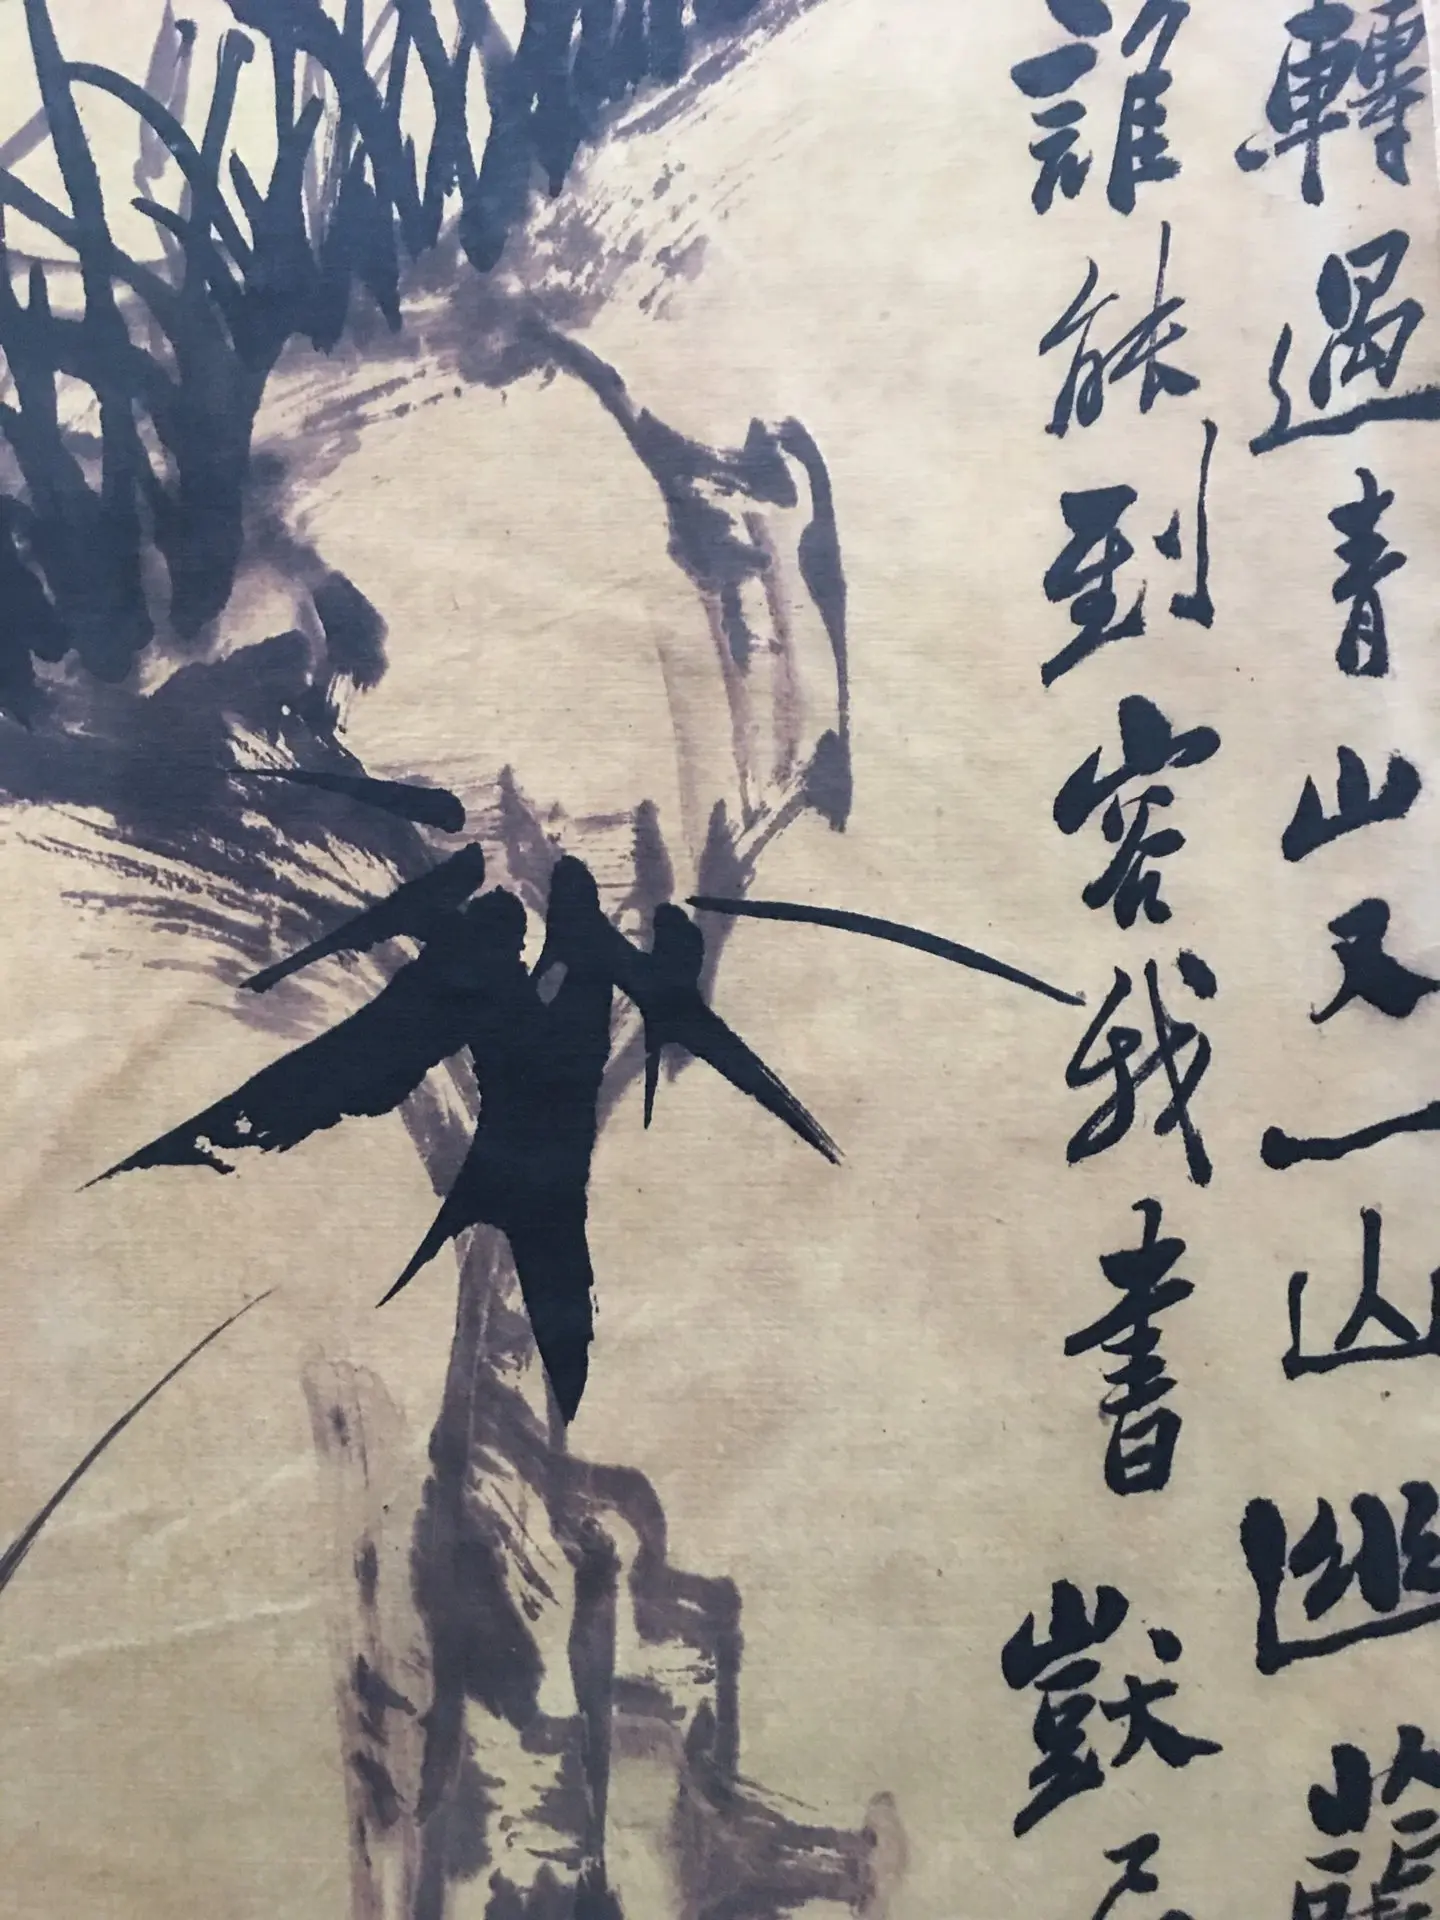 轉過青山又一山幽
誰能到容我書獃